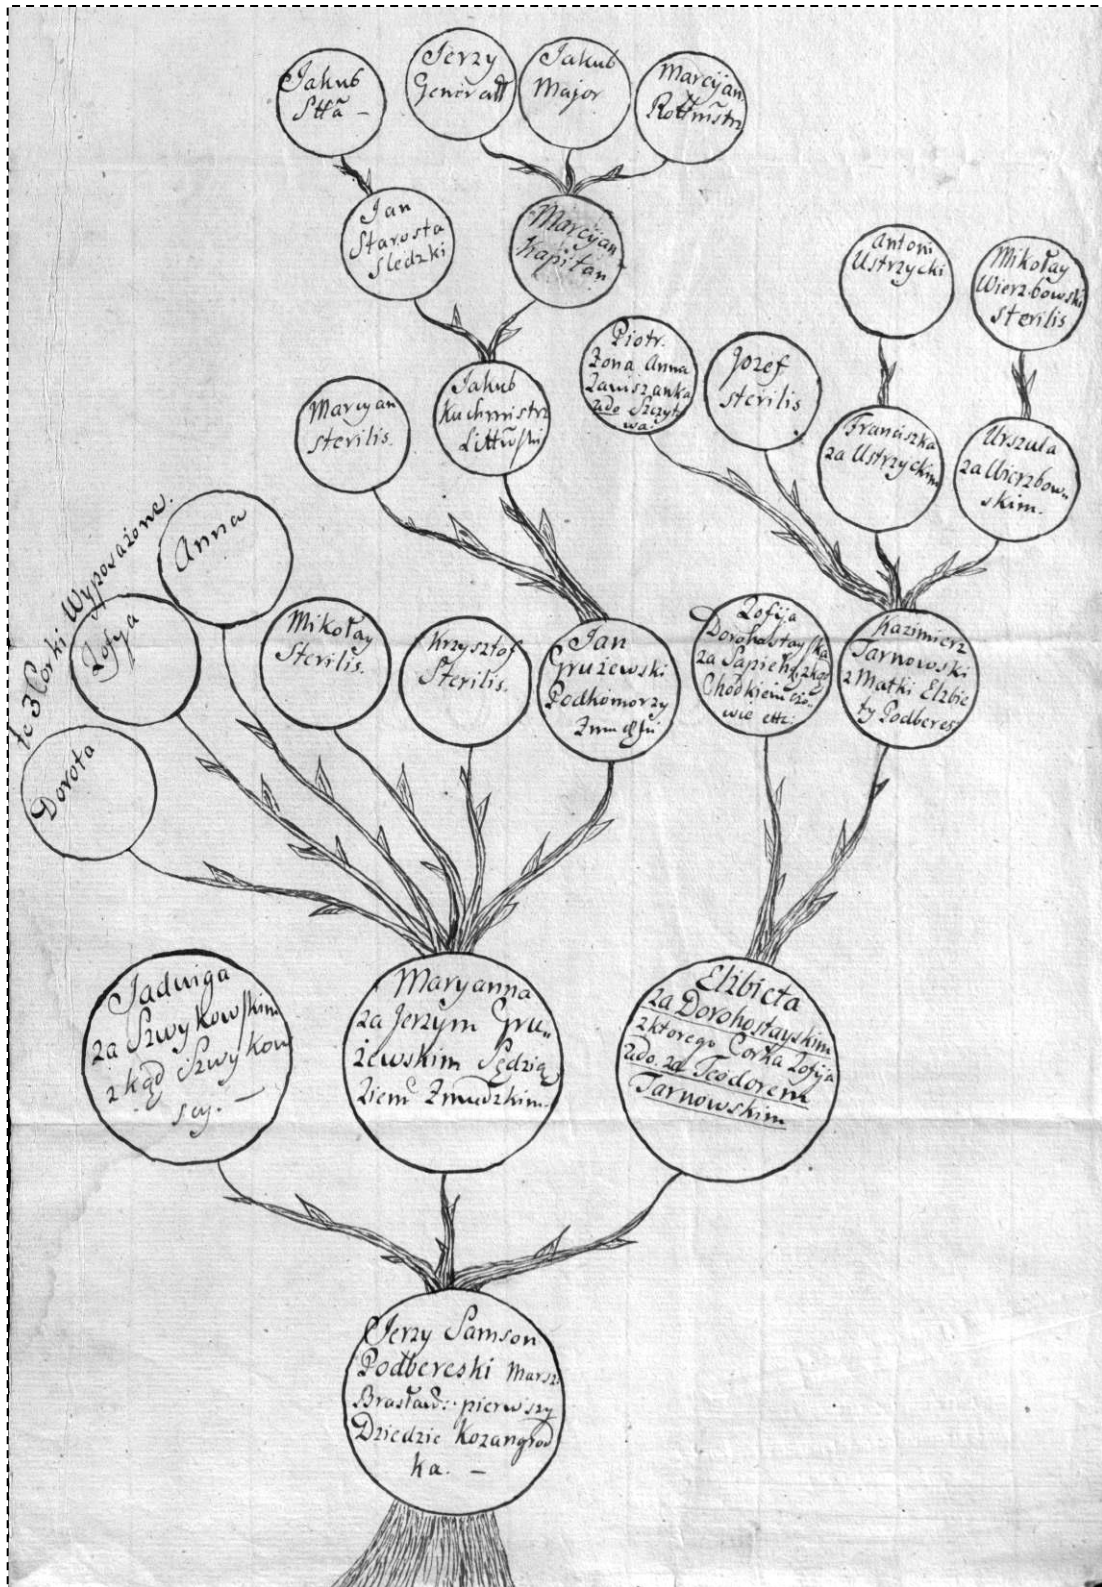 Jakub
Jerzy
Generall
Jakub
Major
Marcyan
Rottmistrz
Jan
Starosta
Sledzki
Marcyan
Kapitan
Antoni
Ustrzycki
Mikołay
Wierzbowski
sterilis
Piotr.
Zona Anna
Zawiszanka
Jozef
sterilis
Marcyan
sterilis.
Jakub
Kuchmistrz
Franciszka
za Ustrzyckim
Urszula
za Wierzbow„
skim.
te 3 Corki Wyposażone.
Anna
Zofya
Dorota
Mikołay
Sterilis.
Krzysztof
Sterilis.
Jan
Grużewski
Podkomorzy
Zofija
Dorohostayska
za Sapiehą
Kazimierz
Tarnowski
z Matki Elzbie
ty Podberes:
Jadwiga
za Szwykowskim
z kąd Szwykow
scy. —
Maryanna
za Jerzym Gru„
żewskim Sędzią
Ziem Zmudzkim.
Elzbieta
za Dorohostayskim
z ktorego Corka Zofija
2do. za Teodorem
Tarnowskim
Jerzy Samson
Podbereski Marsz:
Brasław: pierwszy
Dziedzic Kozangrod
ka. —